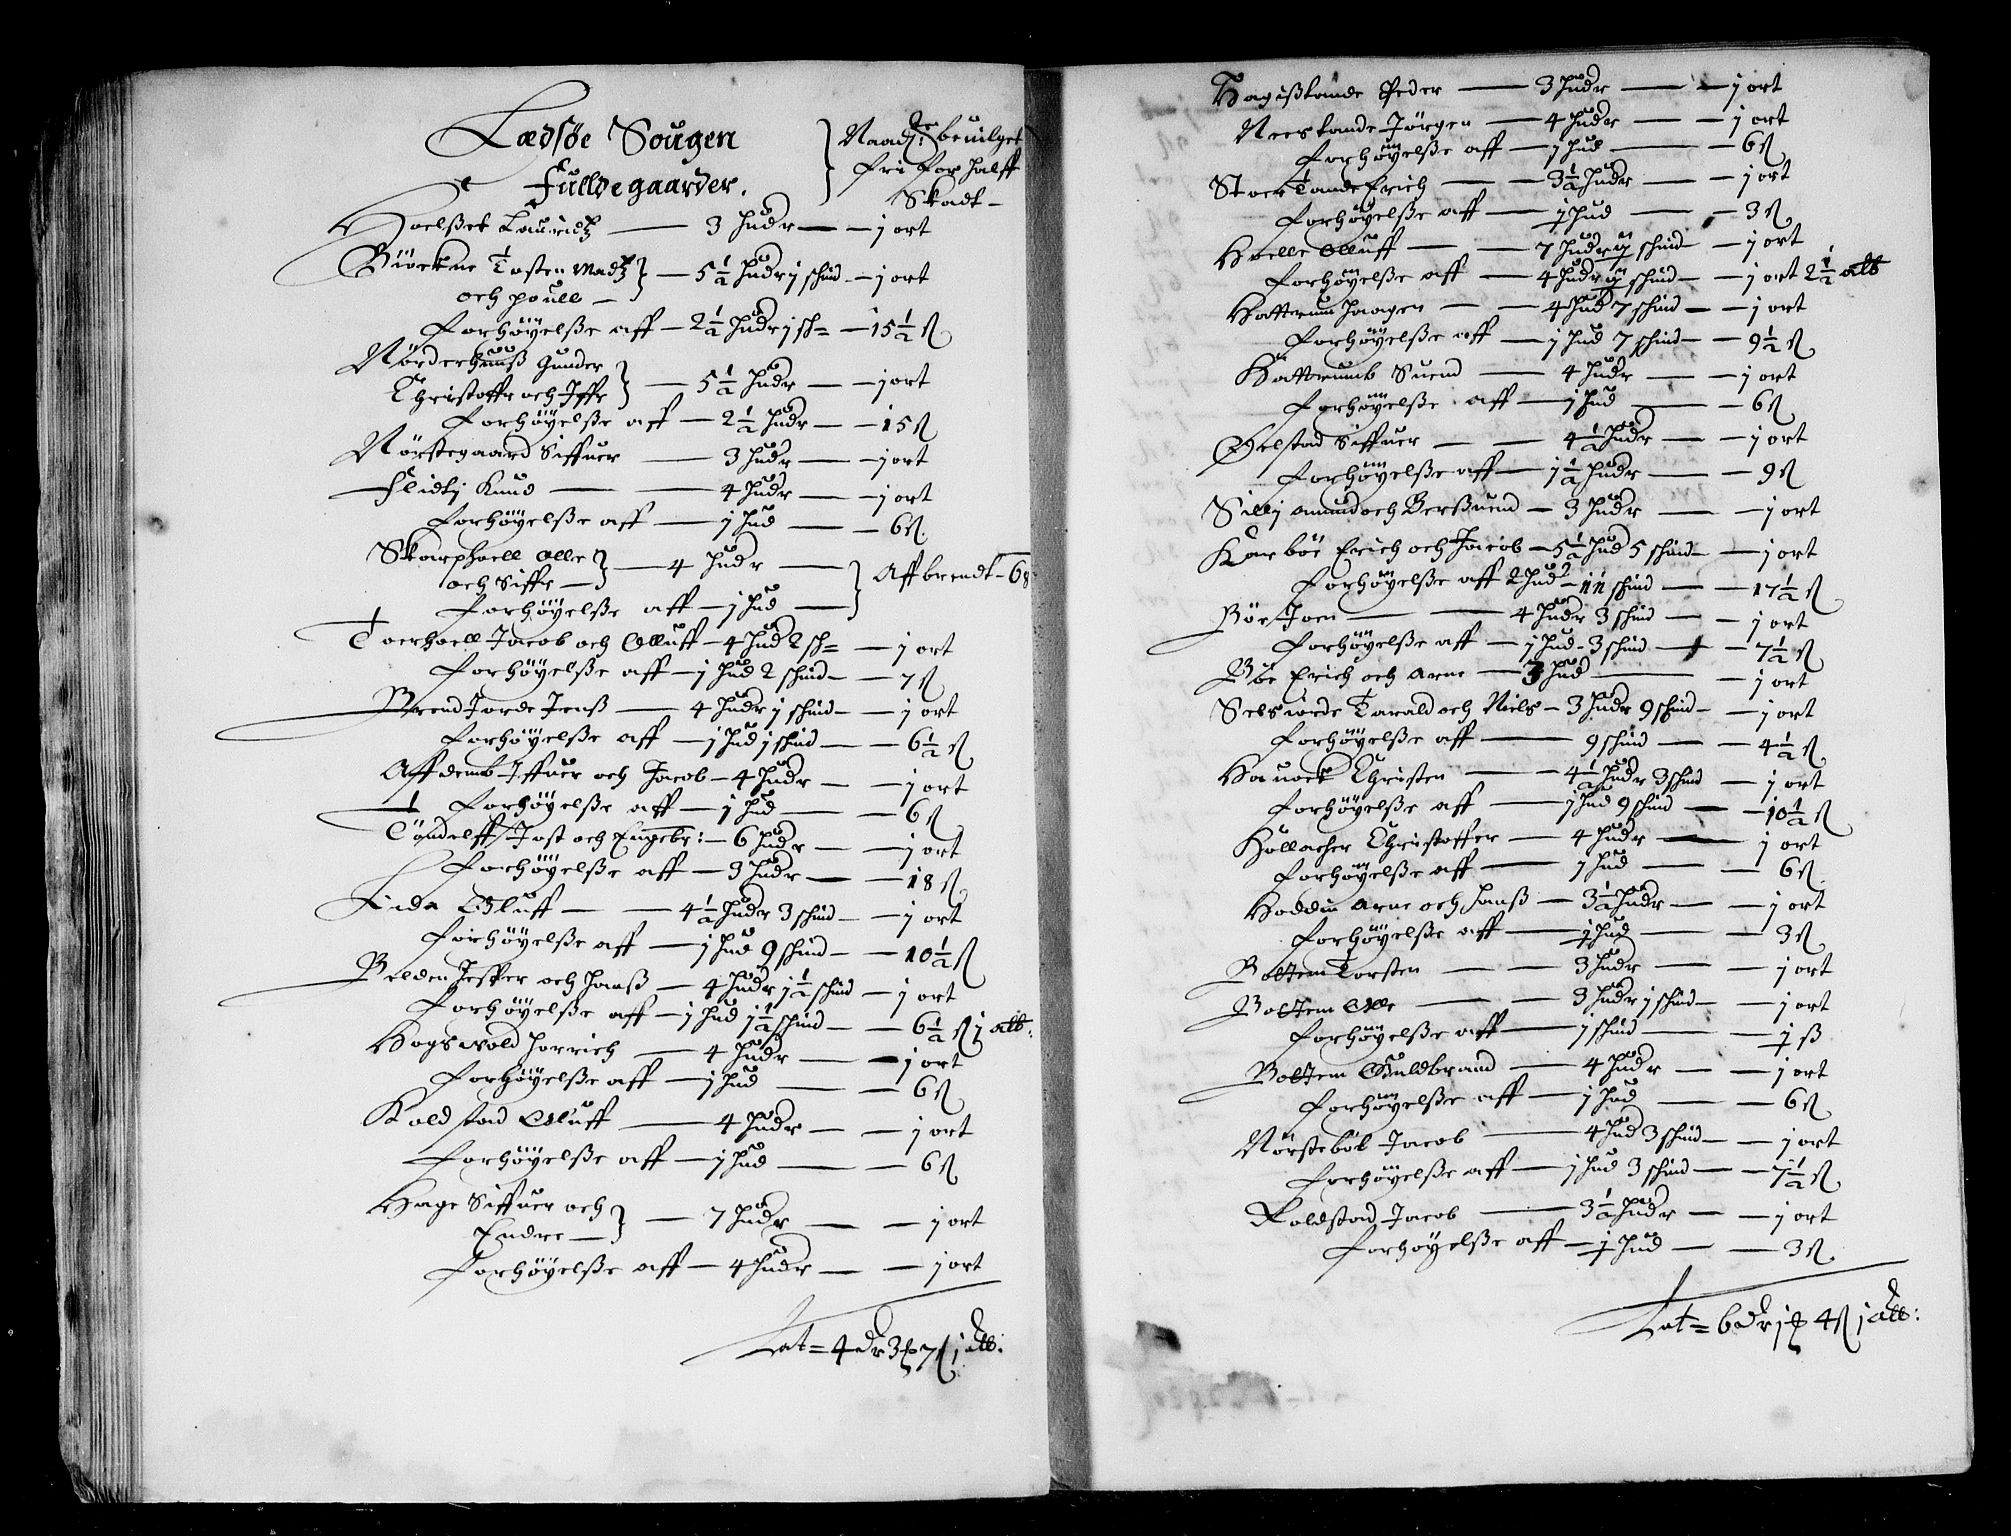 Lædsøe Sougen
Fulldegaarder.
Naad: beuilget
fri for halff
Skadt
Hoelßet Lauridtz — 3 hudr — j ort
Biørkne Tosten Madtz
och poull — 5½ hudr j schind — j ort
forhøyelße aff — 2½ hudr j sch= — 15½ ß
Nörderhuuß Gunder
Christoffr och Iffr — 5½ hudr — j ort
forhøyelße aff — 2½ hudr — 15 ß
Nörstegaard Siffuer — 3 hudr — j ort
Flidtj Knud — 4 hudr — j ort
forhøyelße aff — j hud — 6 ß
Skarphoell olle
och Siffr — 4 hudr
forhøyelße aff — j hud — Affbrendt — 6 ß
Toerhoell Jacob och Olluff — 4 hud 2 sch= — j ort
forhøyelße aff — j hud 2 schind — 7 ß
Brend Jorde Jenß — 4 hudr j schind — j ort
forhøyelße aff — j hud j schind — 6½ ß
Affdemb Iffuer och Jacob — 4 hudr — j ort
forhøyelße aff — j hud — 6 ß
Töndelff Jost och Engebr: — 6 hudr — j ort
forhøyelße aff — 3 hudr — 18 ß
Lida Olluff — 4½ hudr 3 schind — j ort
forhøyelße aff — j hud 9 schind — 10½ ß
Belden Jesper och hanß — 4 hudr j½ schind — j ort
forhøyelße aff — j hud j½ schind — 6½ ß j alb:
Hogswold horrich — 4 hudr — j ort
forhøyelße aff — j hud — 6 ß
Koldstad Olluff — 4 hudr — j ort
forhøyelße aff — j hud — 6 ß
Hage Siffuer och
Endre — 7 hudr — j ort
forhøyelße aff — 4 hudr — j ort
Lat= 4 dr 3 ß 7 ß j alb:
Hagißtande Peder — 3 hudr — j ort
Neerstande Jörgen — 4 hudr — j ort
forhøyelße aff — j hud — 6 ß
Stoer Tande Erich — 3½ hudr — j ort
forhøyelße aff — ½ hud — 3 ß
Hoelle Olluff — 7 hudr schind — j ort
forhøyelße aff — 4 hudr schind — j ort 2½ alb
Hattrum Haagen — 4 hud 7 schind — j ort
forhøyelße aff — j hud 7 schind — 9½ ß
Hattrumb Suend — 4 hudr — j ort
forhøyelße aff — j hud — 6 ß
Ølstad Siffuer — 4½ hudr — j ort
forhøyelße aff — j½ hudr — 9 ß
Sillj Amund och Berßuend — 3 hudr — j ort
Kaarböe Erich och Jacob — 5½ hud 5 schind — j ort
forhøyelße aff 2 hud — 11 schind — 17½ ß
Böe Joen — 4 hudr 3 schind — j ort
forhøyelße aff — j hud 3 schind — 7½ ß
Böe Erich och Arne — 3 hud — j ort
Selsiorde Tarald och Niels — 3 hudr 9 schind — j ort
forhøyelße aff — 9 schind — 4½ ß
Hauoek Christen — 4½ hudr 3 schind — j ort
forhøyelße aff — j hud 9 schind — 10½ ß
Hollacher Christoffer — 4 hudr — j ort
forhøyelße aff — j hud — 6 ß
Hoddin Arne och hanß — 3½ hudr — j ort
forhøyelße aff — ½ hud — 3 ß
Boltem Torsten — 3 hudr — j ort
Boltem Olle — 3 hudr j schind — j ort
forhøyelße aff — j schind — ½ ß
Boltem Guldbrand — 4 hudr — j ort
forhøyelße aff — j hud — 6 ß
Nörsteböe Jacob — 4 hud 3 schind — j ort
forhøyelße aff — j hud 3 schind — 7½ ß
Roldstad Jacob — 3½ hudr — j ort
forhøyelße aff — ½ hud — 3 ß
Lat= 6 dr j ß 4 ß j alb: